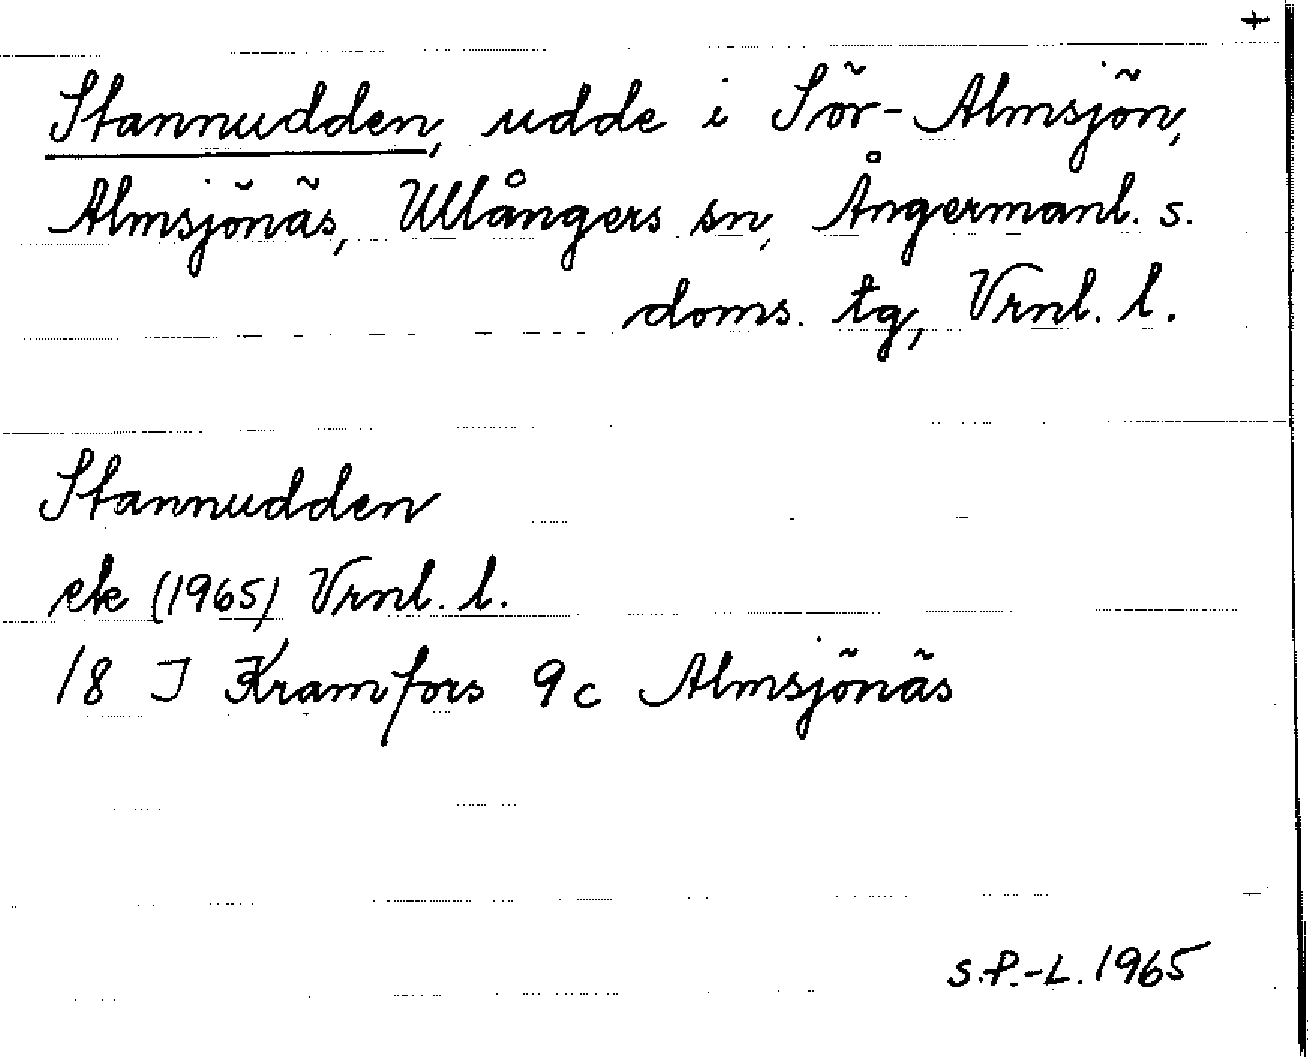 +
Stannudden, udde i Sör-Almsjön,
Almsjönäs, Ullångers sn, Ångermanl. s.
doms. tg, Vrnl. l.
Stannudden
ek (1965) Vrnl. l.
18 I Kramfors 9c Almsjönäs
S.P.-L. 1965